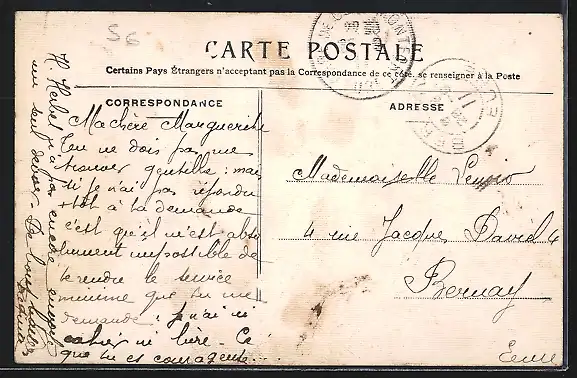 56
CARTE POSTALE
Certains Pays Étrangers n'acceptant pas la Correspondance de ce côté, se renseigner à la Poste
CORRESPONDANCE
Ma chère Marguerite
Tu ne dois pas me
trouver gentille; mais
si je n'ai pas répondu
+ tôt à ta demande
c'est qu'il m'est abso
lument impossible de
te rendre le service
minime que tu me
demande: je n'ai ni
cahier ni livre. Ce
que tu es courageuse....
M. n'a pas encore envoyé
un seul devoir
ADRESSE
Mademoiselle
4 rue Jacques Daviel 4
Bernay
Eure